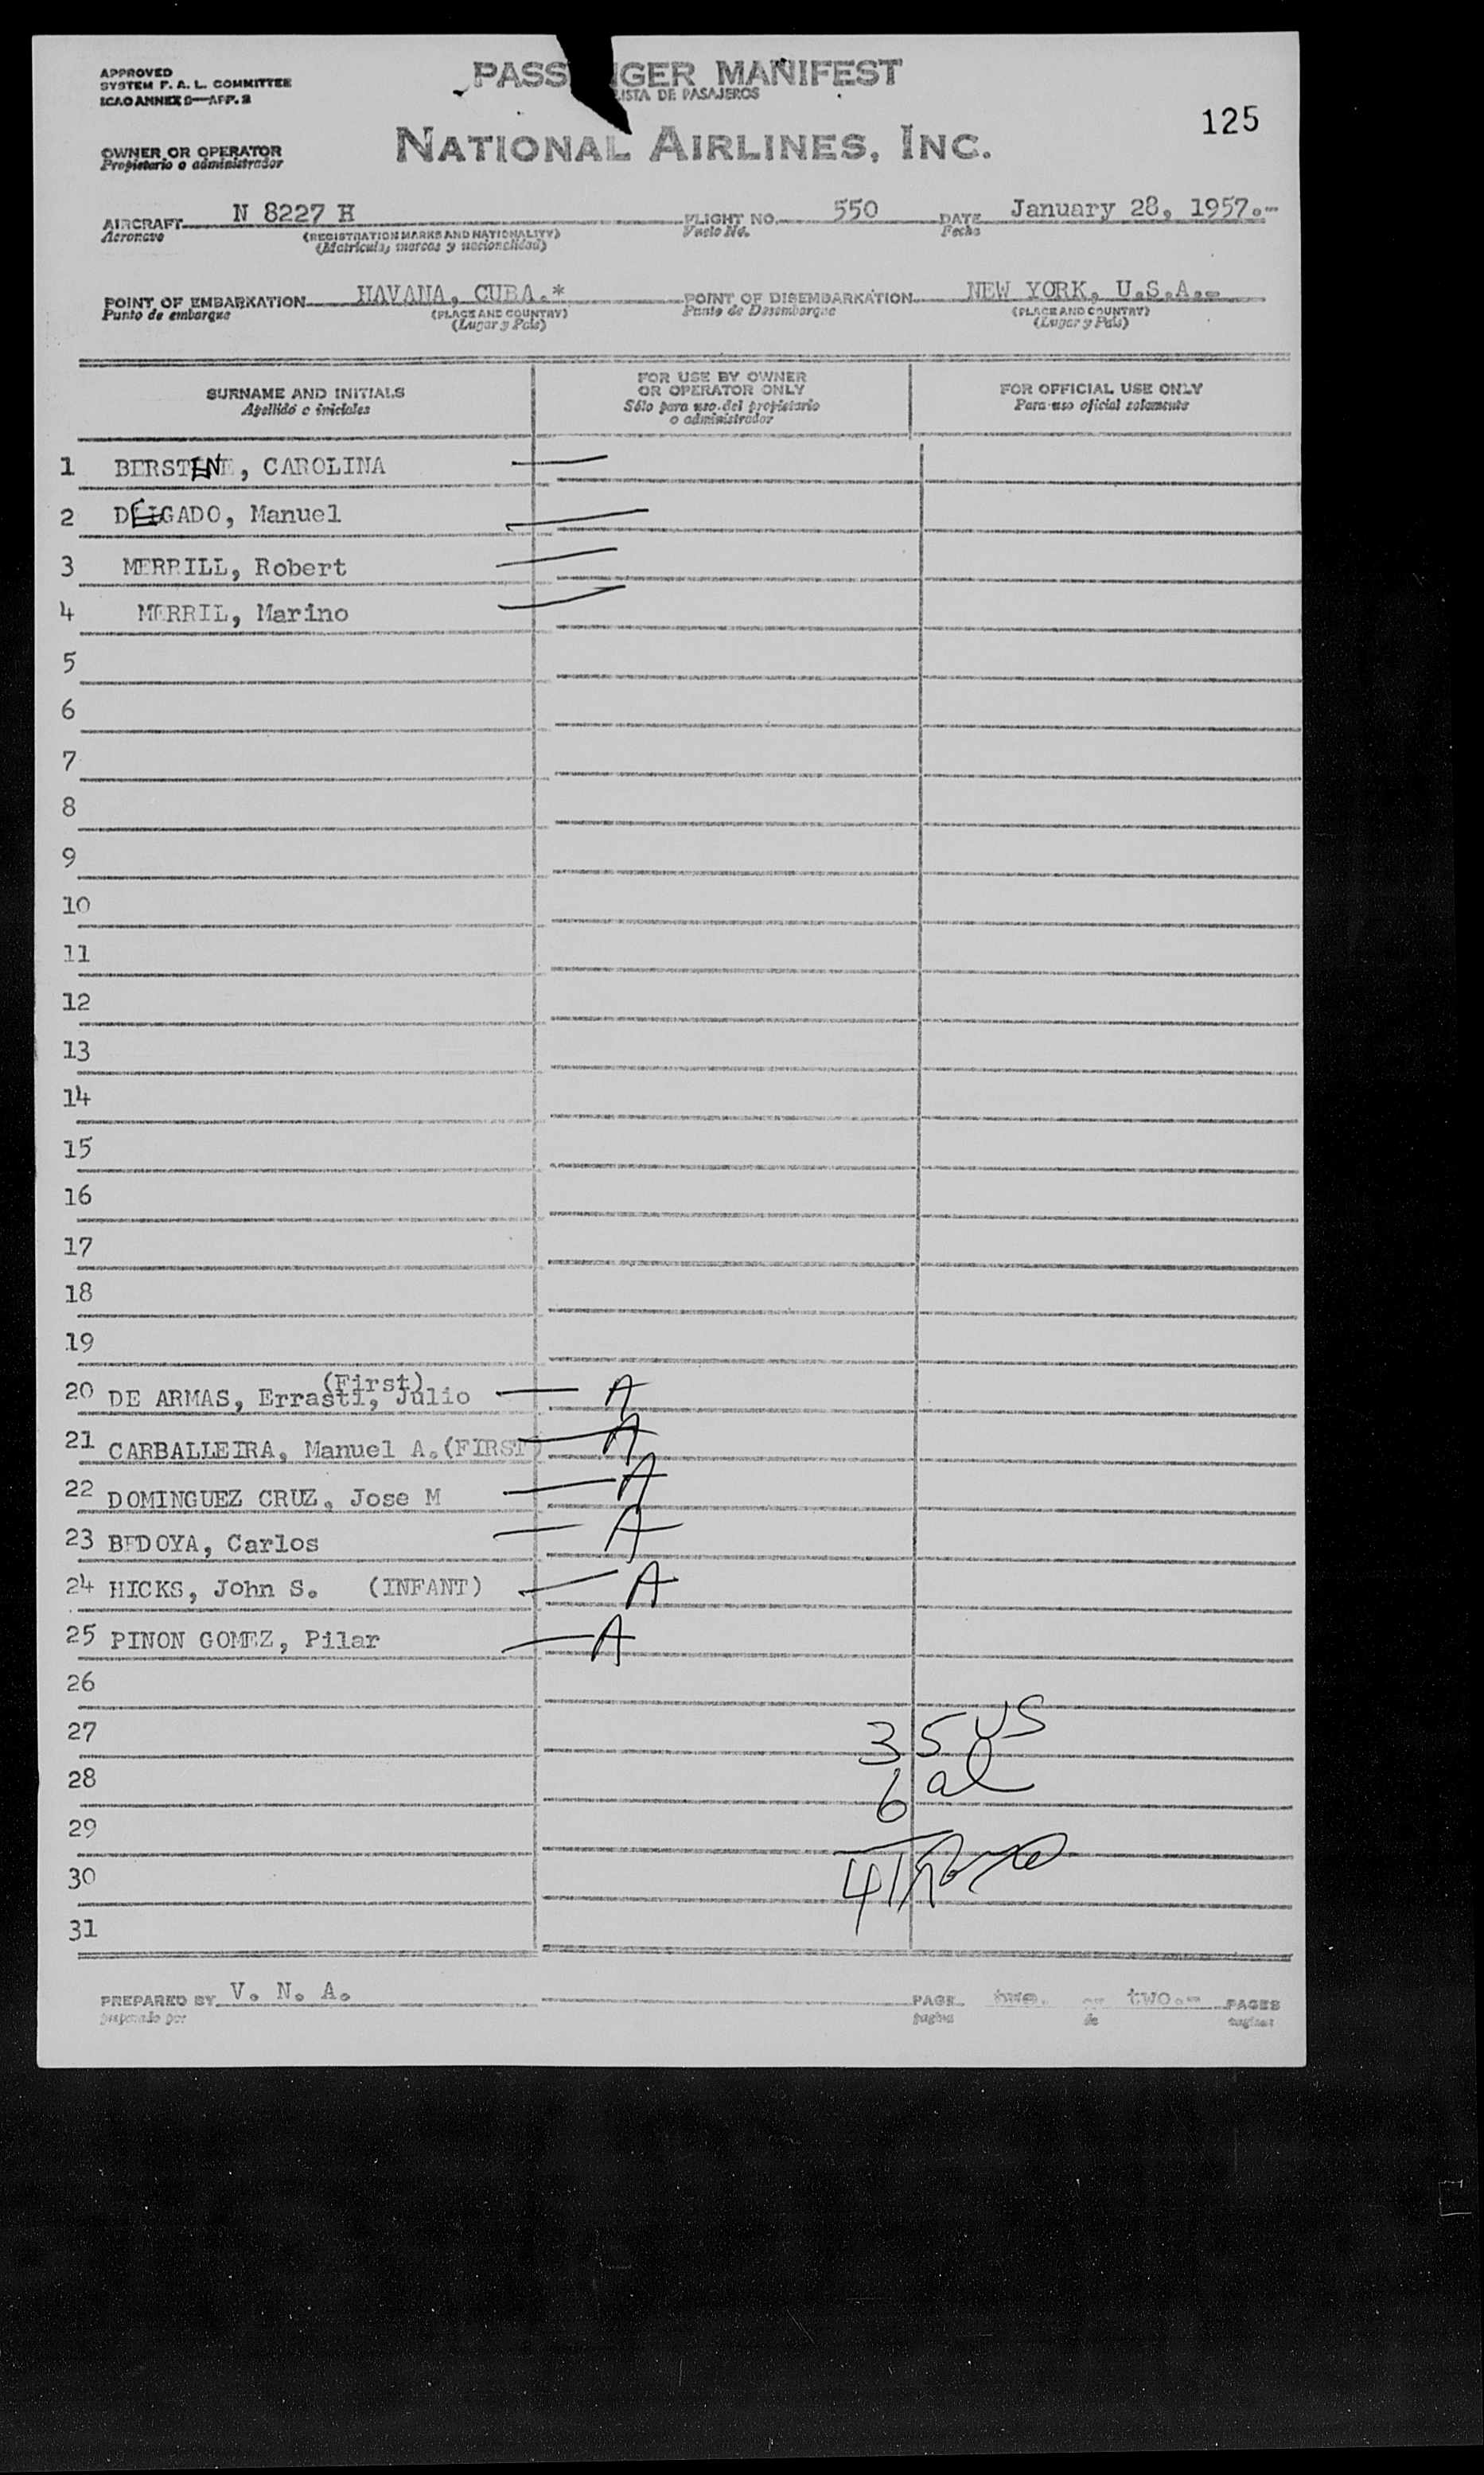 APPROVED
SYSTEM F. A. L. COMMITTEE
ICAO ANNEX 9—APP. 2
PASS NGER MANIFEST
LISTA DE PASAJEROS
125
OWNER OR OPERATOR
Propietario o administrador
NATIONAL AIRLINES, INC.
AIRCRAFT N 8227 H FLIGHT NO. 550 DATE January 28, 1957.-
Aeronave (REGISTRATION MARKS AND NATIONALITY) Vuelo No. Fecha
(Matricula, marcas y nacionalidad)
POINT OF EMBARKATION HAVANA, CUBA.* POINT OF DISEMBARKATION NEW YORK, U.S.A.-
Punto de embarque (PLACE AND COUNTRY) Punto de Desembarque (PLACE AND COUNTRY)
(Lugar y Pais) (Lugar y Pais)
SURNAME AND INITIALS
Apellido e iniciales
FOR USE BY OWNER
OR OPERATOR ONLY
Sólo para uso del propietario
o administrador
FOR OFFICIAL USE ONLY
Para uso oficial solamente
1 BERSTENE, CAROLINA —
2 DELGADO, Manuel —
3 MERRILL, Robert —
4 MERRIL, Marino —
5
6
7
8
9
10
11
12
13
14
15
16
17
18
19
(First)
20 DE ARMAS, Errasti, Julio — A
21 CARBALLEIRA, Manuel A.(FIRST) — A
22 DOMINGUEZ CRUZ, Jose M — A
23 BEDOYA, Carlos — A
24 HICKS, John S. (INFANT) — A
25 PINON GOMEZ, Pilar — A
26
27 35 US
28 6 al
29
30 41
31
PREPARED BY V. N. A. PAGE two. OF two.- PAGES
preparado por pagina de paginas